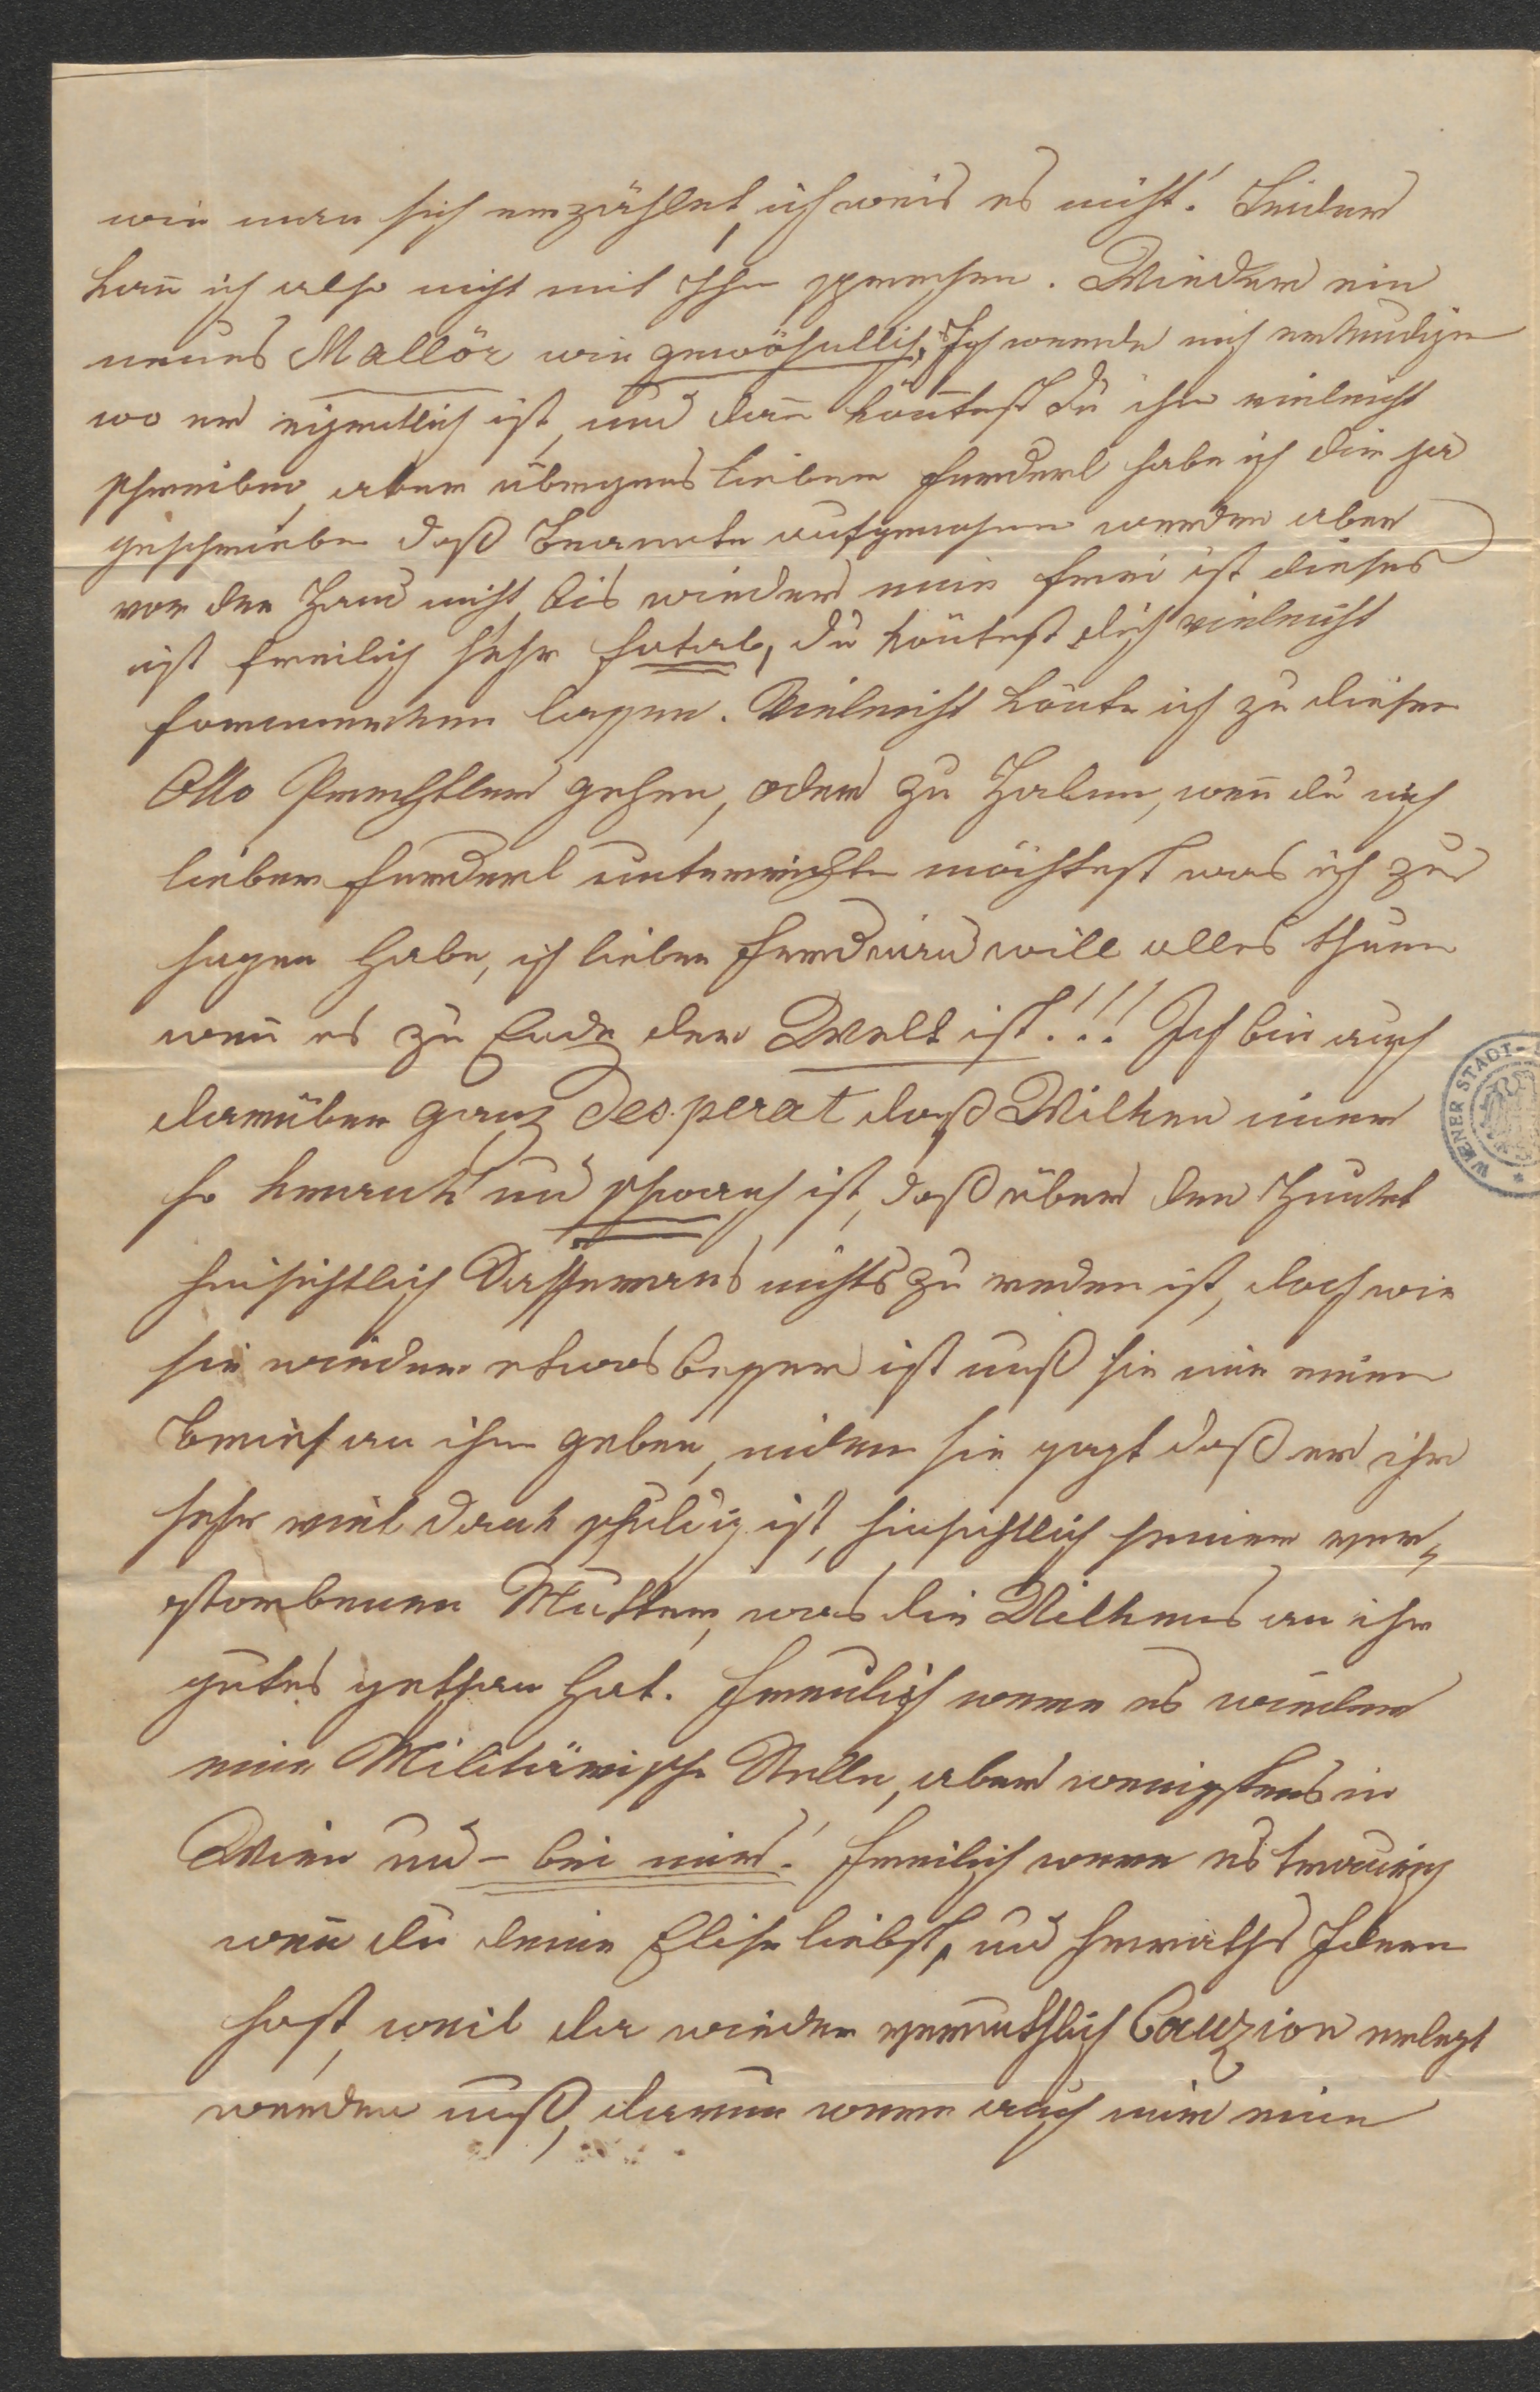 wie man sich erzählet, ich weis es nicht! Leider
kan̄ ich also nicht mit Ihm sprechen. Wieder ein
neues Mallör wie gewöhnllich, Ich werde mich erkundigen
wo er eigentlich ist, und dan̄ kön̄test Du ihm vieleicht
schreiben, aber übrigens lieber Ferderl habe ich dir ja
geschrieben daß Beamte aufgenohmen werden aber
vor der Hand nicht, bis wieder eine frei ist dieses
ist freilich sehr fatal, du köntest dich vieleicht
formerken lassen. Vieleicht könte ich zu diesen
Otto Prechtler gehen, oder zu Halm, wen̄ du mich
lieber Ferderl unterrichten möchtest was ich zu
sagen habe, ich lieber Ferdinand will alles thuen
wen̄ es zu Ende der Welt ist!!! Ich bin auch
darüber ganz desperat daß Wilken im̄er
so krank und schwach ist, daß über den Punkt
hinsichtlich Dessemans nichts zu reden ist, doch wie
sie wieder etwas besser ist muß sie mir einen
Brief an ihm geben, indem sie sagt daß er ihr
sehr viel dank schuldig ist, hinsichtlich seiner ver„
storbenen Mutter, was die Wilkens an ihr
gutes gethan hat. Freulich were es wieder
eine Militärische Stelle, aber wenigstens in
Wien und – bei mir! Freilich were es traurig
wen̄ du deine Elise liebst, und Heiraths Ideen
hast, weil da wieder vermuthlich Cauzion erlegt
werden muß, darum were auch mir eine
WIENER STADT-